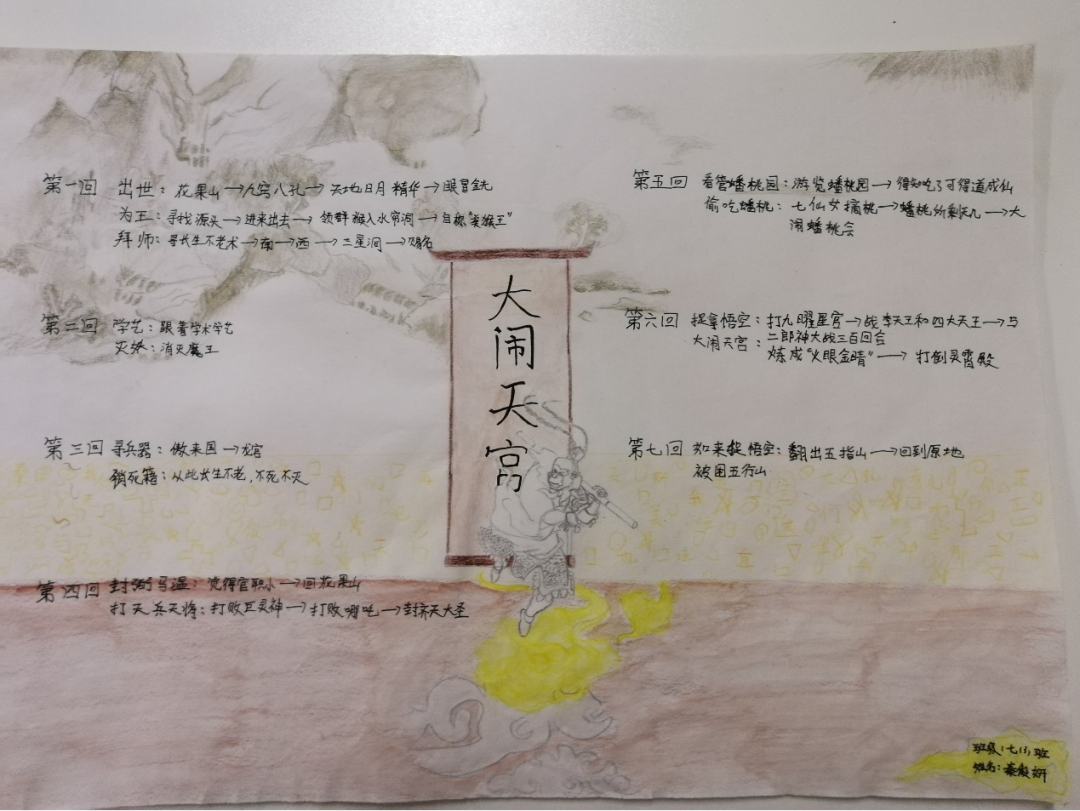 第一回 出世：花果山→九窍八孔→天地日月精华→眼冒金光
为王：寻找源头→进来出去→领群猴入水帘洞→自称"美猴王"
拜师：寻长生不老术→南→西→三星洞→赐名
第二回 学艺：跟着学术学艺
灭妖：消灭魔王
第三回 寻兵器：傲来国→龙宫
销死籍：从此长生不老，不死不灭
第四回 封弼马温：觉得官职小→回花果山
打天兵天将：打败巨灵神→打败哪吒→封齐天大圣
大闹天宫
第五回 看管蟠桃园：游览蟠桃园→得知吃了可得道成仙
偷吃蟠桃：七仙女摘桃→蟠桃所剩无几→大
闹蟠桃会
第六回 捉拿悟空：打九曜星官→战李天王和四大天王→与
二郎神大战三百回合
大闹天宫：炼成"火眼金睛"→打倒灵霄殿
第七回 如来捉悟空：翻出五指山→回到原地
被困五行山
班级：七(3)班
姓名：